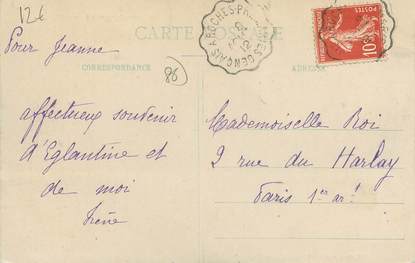 12€
CARTE POSTALE
Pour Jeanne
CORRESPONDANCE
ADRESSE
86
POSTES
10
affectueux souvenir
d'Eglantine et
de moi
Irène
Mademoiselle Roi
2 rue du Harlay
Paris 1er arr